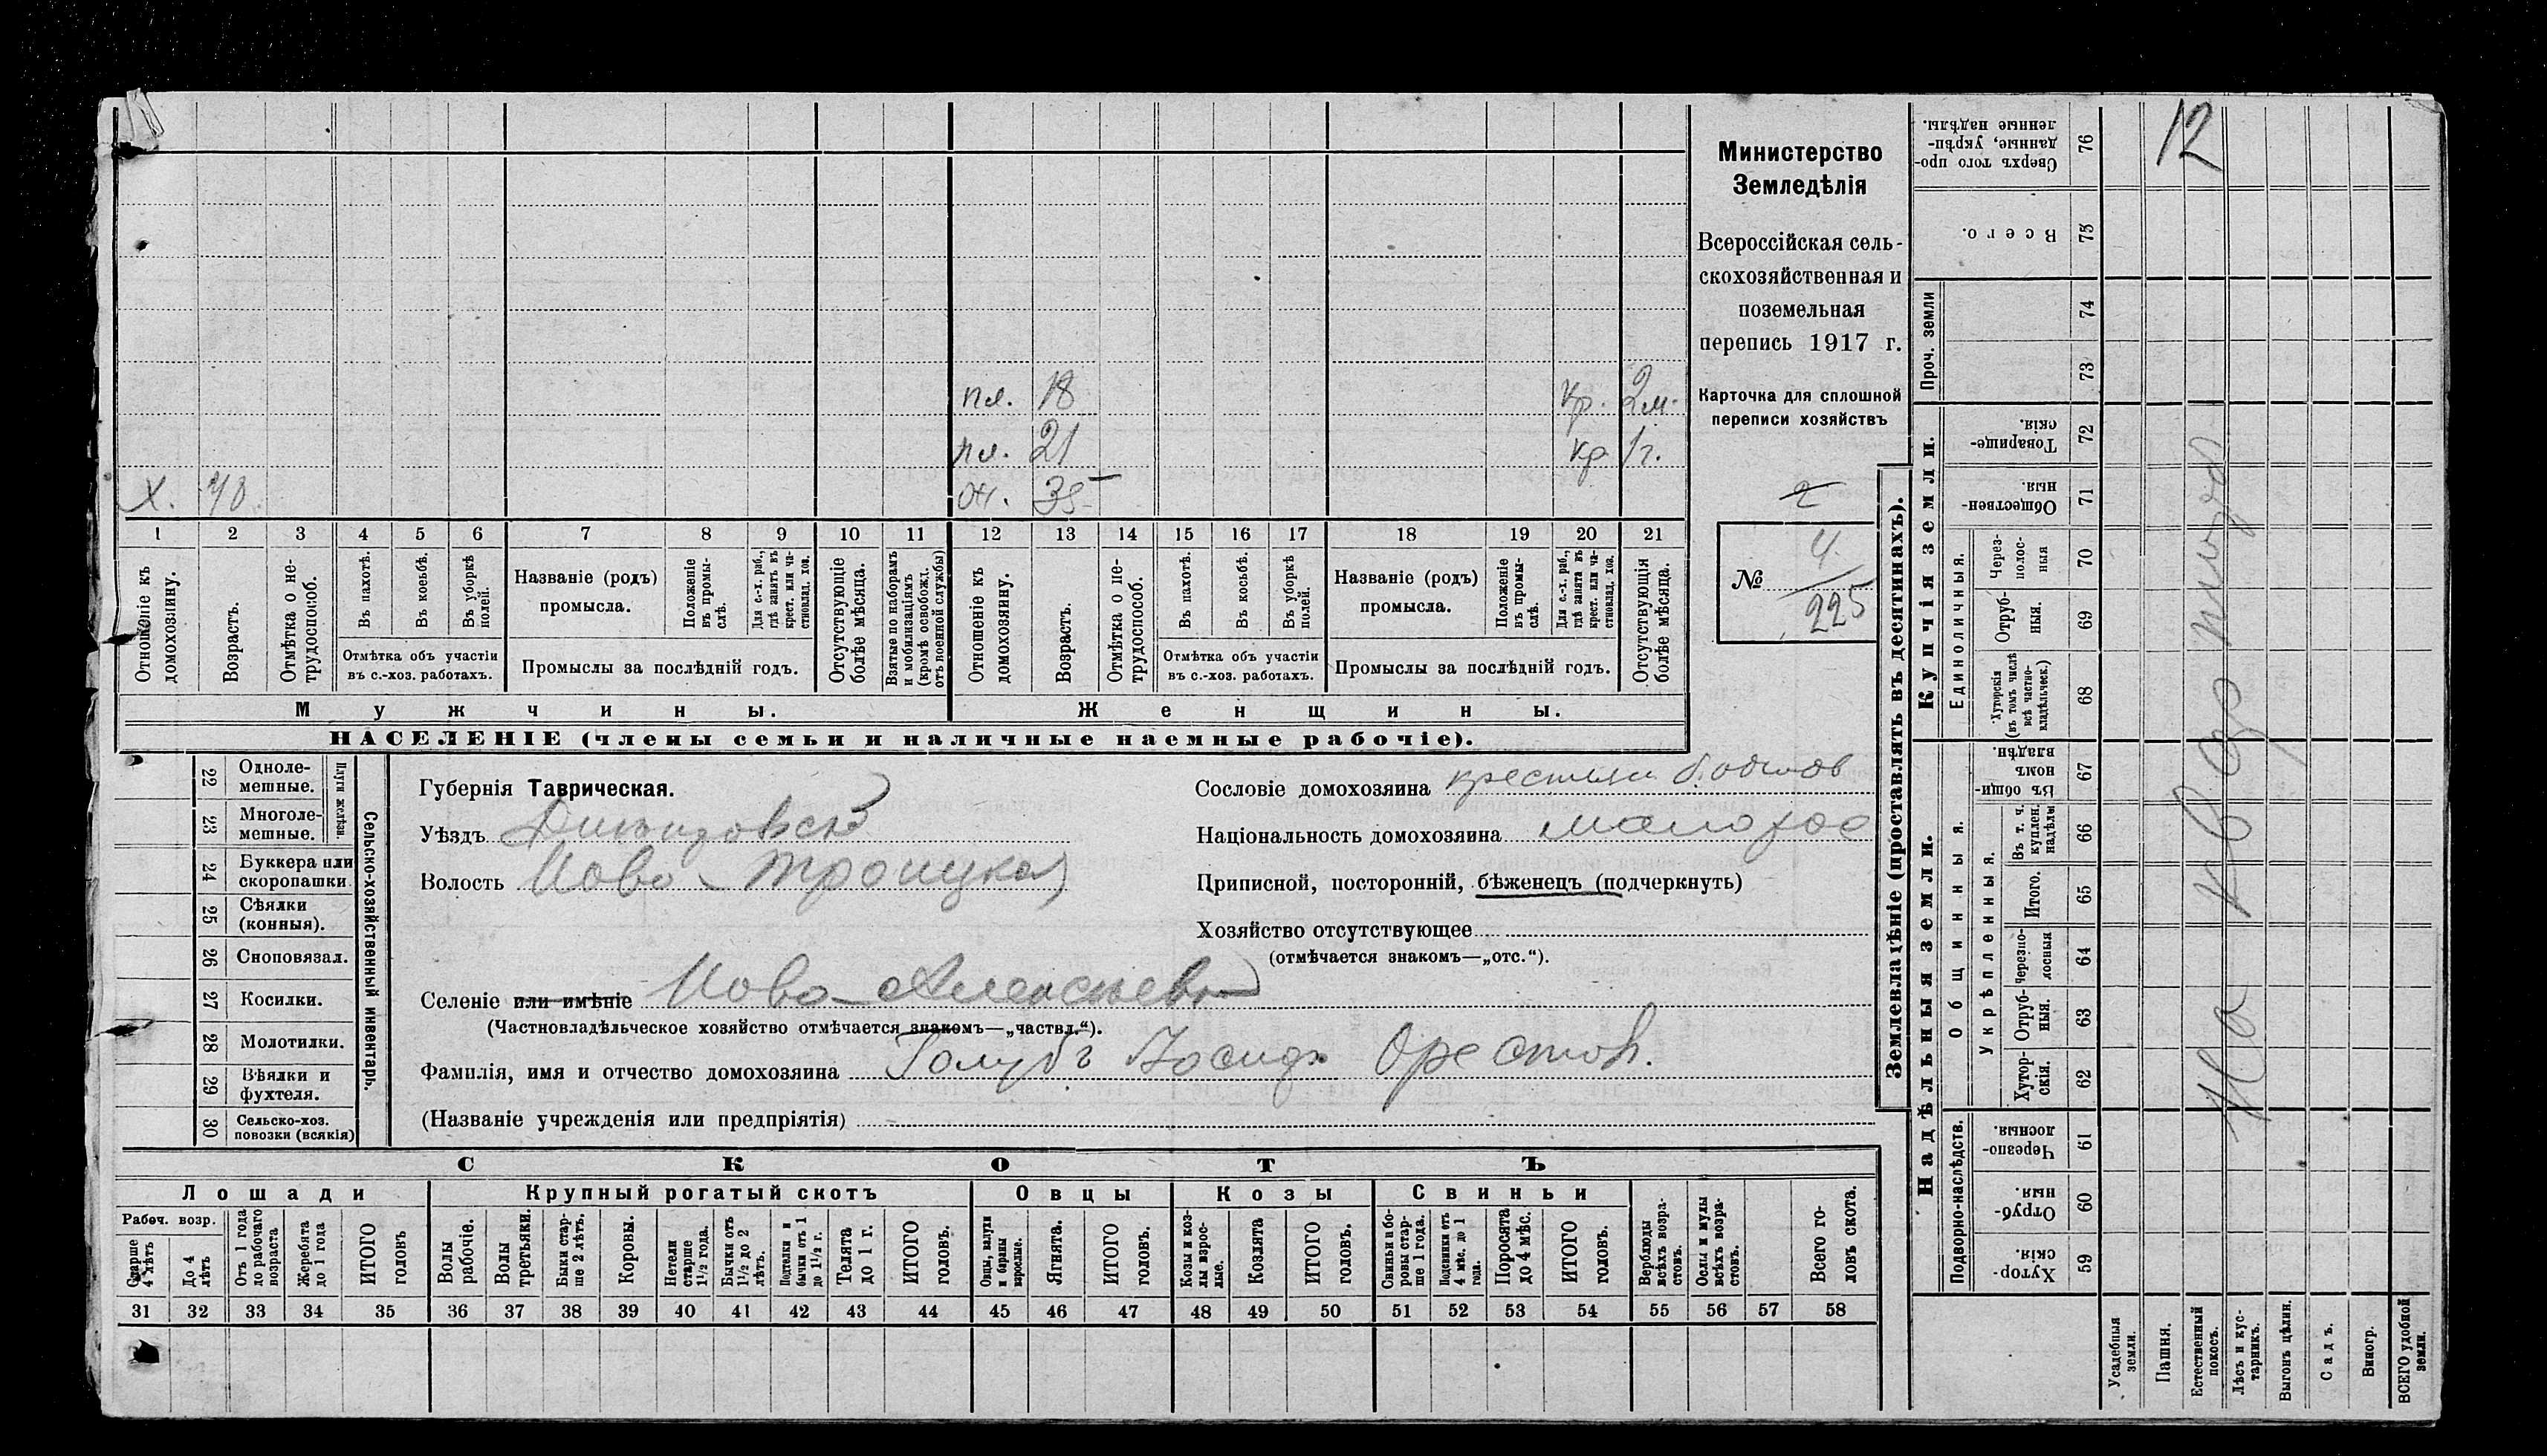 Министерство
Земледѣлія
Всероссійская сель-
скохозяйственная и
поземельная
перепись 1917 г.
Карточка для сплошной
переписи хозяйствъ
2
№ 4
225
пл. 18 кр. 2 м.
пл. 21 кр 1 г.
Х. 40. 35
1 2 3 4 5 6 7 8 9 10 11 12 13 14 15 16 17 18 19 20 21
Отношеніе къ домохозяину.
Возрастъ.
Отмѣтка о не-трудоспособ.
Въ пахотѣ.
Въ косьбѣ.
Въ уборкѣ полей.
Отмѣтка объ участіи
въ с.-хоз. работахъ.
Названіе (родъ)
промысла.
Положеніе въ промы-слѣ.
Для с.-х. раб., гдѣ занятъ въ крест. или ча-стновлад. хоз.
Промыслы за послѣдній годъ.
Отсутствующіе болѣе мѣсяца.
Взятые по наборамъ и мобилизаціямъ (кромѣ освобожд. отъ военной службы)
Отношеніе къ домохозяину.
Возрастъ.
Отмѣтка о не-трудоспособ.
Въ пахотѣ.
Въ косьбѣ.
Въ уборкѣ полей.
Отмѣтка объ участіи
въ с.-хоз. работахъ.
Названіе (родъ)
промысла.
Положеніе въ промы-слѣ.
Для с.-х. раб., гдѣ занята въ крест. или ча-стновлад. хоз.
Промыслы за послѣдній годъ.
Отсутствующія болѣе мѣсяца.
Мужчины.
Женщины.
НАСЕЛЕНІЕ (члены семьи и наличные наемные рабочіе).
22 Одноле-мешные.
23 Многоле-мешные.
Плуги желѣзн.
24 Буккера или скоропашки
25 Сѣялки (конныя).
26 Сноповязал.
27 Косилки.
28 Молотилки.
29 Вѣялки и фухтеля.
30 Сельско-хоз. повозки (всякія)
Сельско-хозяйственный инвентарь.
Губернія Таврическая.
Уѣздъ
Волость Ново-Троицкая
Селеніе или имѣніе Ново-Алексѣевка
(Частновладѣльческое хозяйство отмѣчается знакомъ—„частвл.“).
Фамилія, имя и отчество домохозяина Голубъ Іосифъ Орестов.
(Названіе учрежденія или предпріятія)
Сословіе домохозяина
Національность домохозяина малорос
Приписной, посторонній, бѣженецъ (подчеркнуть)
Хозяйство отсутствующее
(отмѣчается знакомъ—„отс.“).
СКОТЪ
Лошади
Крупный рогатый скотъ
Овцы
Козы
Свиньи
Рабоч. возр.
Старше 4 лѣтъ
До 4 лѣтъ
Отъ 1 года до рабочаго возраста
Жеребята до 1 года
ИТОГО головъ
Волы рабочіе.
Волы третьяки.
Быки стар-ше 2 лѣтъ.
Коровы.
Нетели старше 1½ года.
Бычки отъ 1½ до 2 лѣтъ.
Подтелки и бычки отъ 1 до 1½ г.
Телята до 1 г.
ИТОГО головъ.
Овцы, валухи и бараны взрослые.
Ягнята.
ИТОГО головъ.
Козы и коз-лы взрос-лые.
Козлята
ИТОГО головъ.
Свиньи и бо-ровы стар-ше 1 года.
Подсвинки отъ 4 мѣс. до 1 года.
Поросята до 4 мѣс.
ИТОГО головъ.
Верблюды всѣхъ возра-стовъ.
Ослы и мулы всѣхъ возра-стовъ.
Всего го-ловъ скота.
31 32 33 34 35 36 37 38 39 40 41 42 43 44 45 46 47 48 49 50 51 52 53 54 55 56 57 58
Землевладѣніе (проставлять въ десятинахъ).
Надѣльныя земли.
Купчія земли.
Проч. земли
Подворно-наслѣдств.
Общинныя.
Укрѣпленныя.
Единоличныя.
59 Хутор-скія.
60 Отруб-ныя.
61 Черезпо-лосныя.
62 Хутор-скія.
63 Отруб-ныя.
64 Черезпо-лосныя
65 Итого.
66 Въ т. ч. куплен. надѣлы
67 Въ общин-номъ владѣн.
68 Хуторскія (въ томъ числѣ всѣ частно-владѣльческ.)
69 Отруб-ныя.
70 Через-полос-ныя
71 Обществен-ныя.
72 Товарище-скія.
73
74
75 Всего.
76 Сверхъ того про-данные, укрѣп-ленные надѣлы.
Усадебныя земли.
Пашня.
Естественный покосъ.
Лѣсъ и кус-тарникъ.
Выгонъ цѣлин.
Садъ.
Виногр.
ВСЕГО удобной земли.
12
На квартире